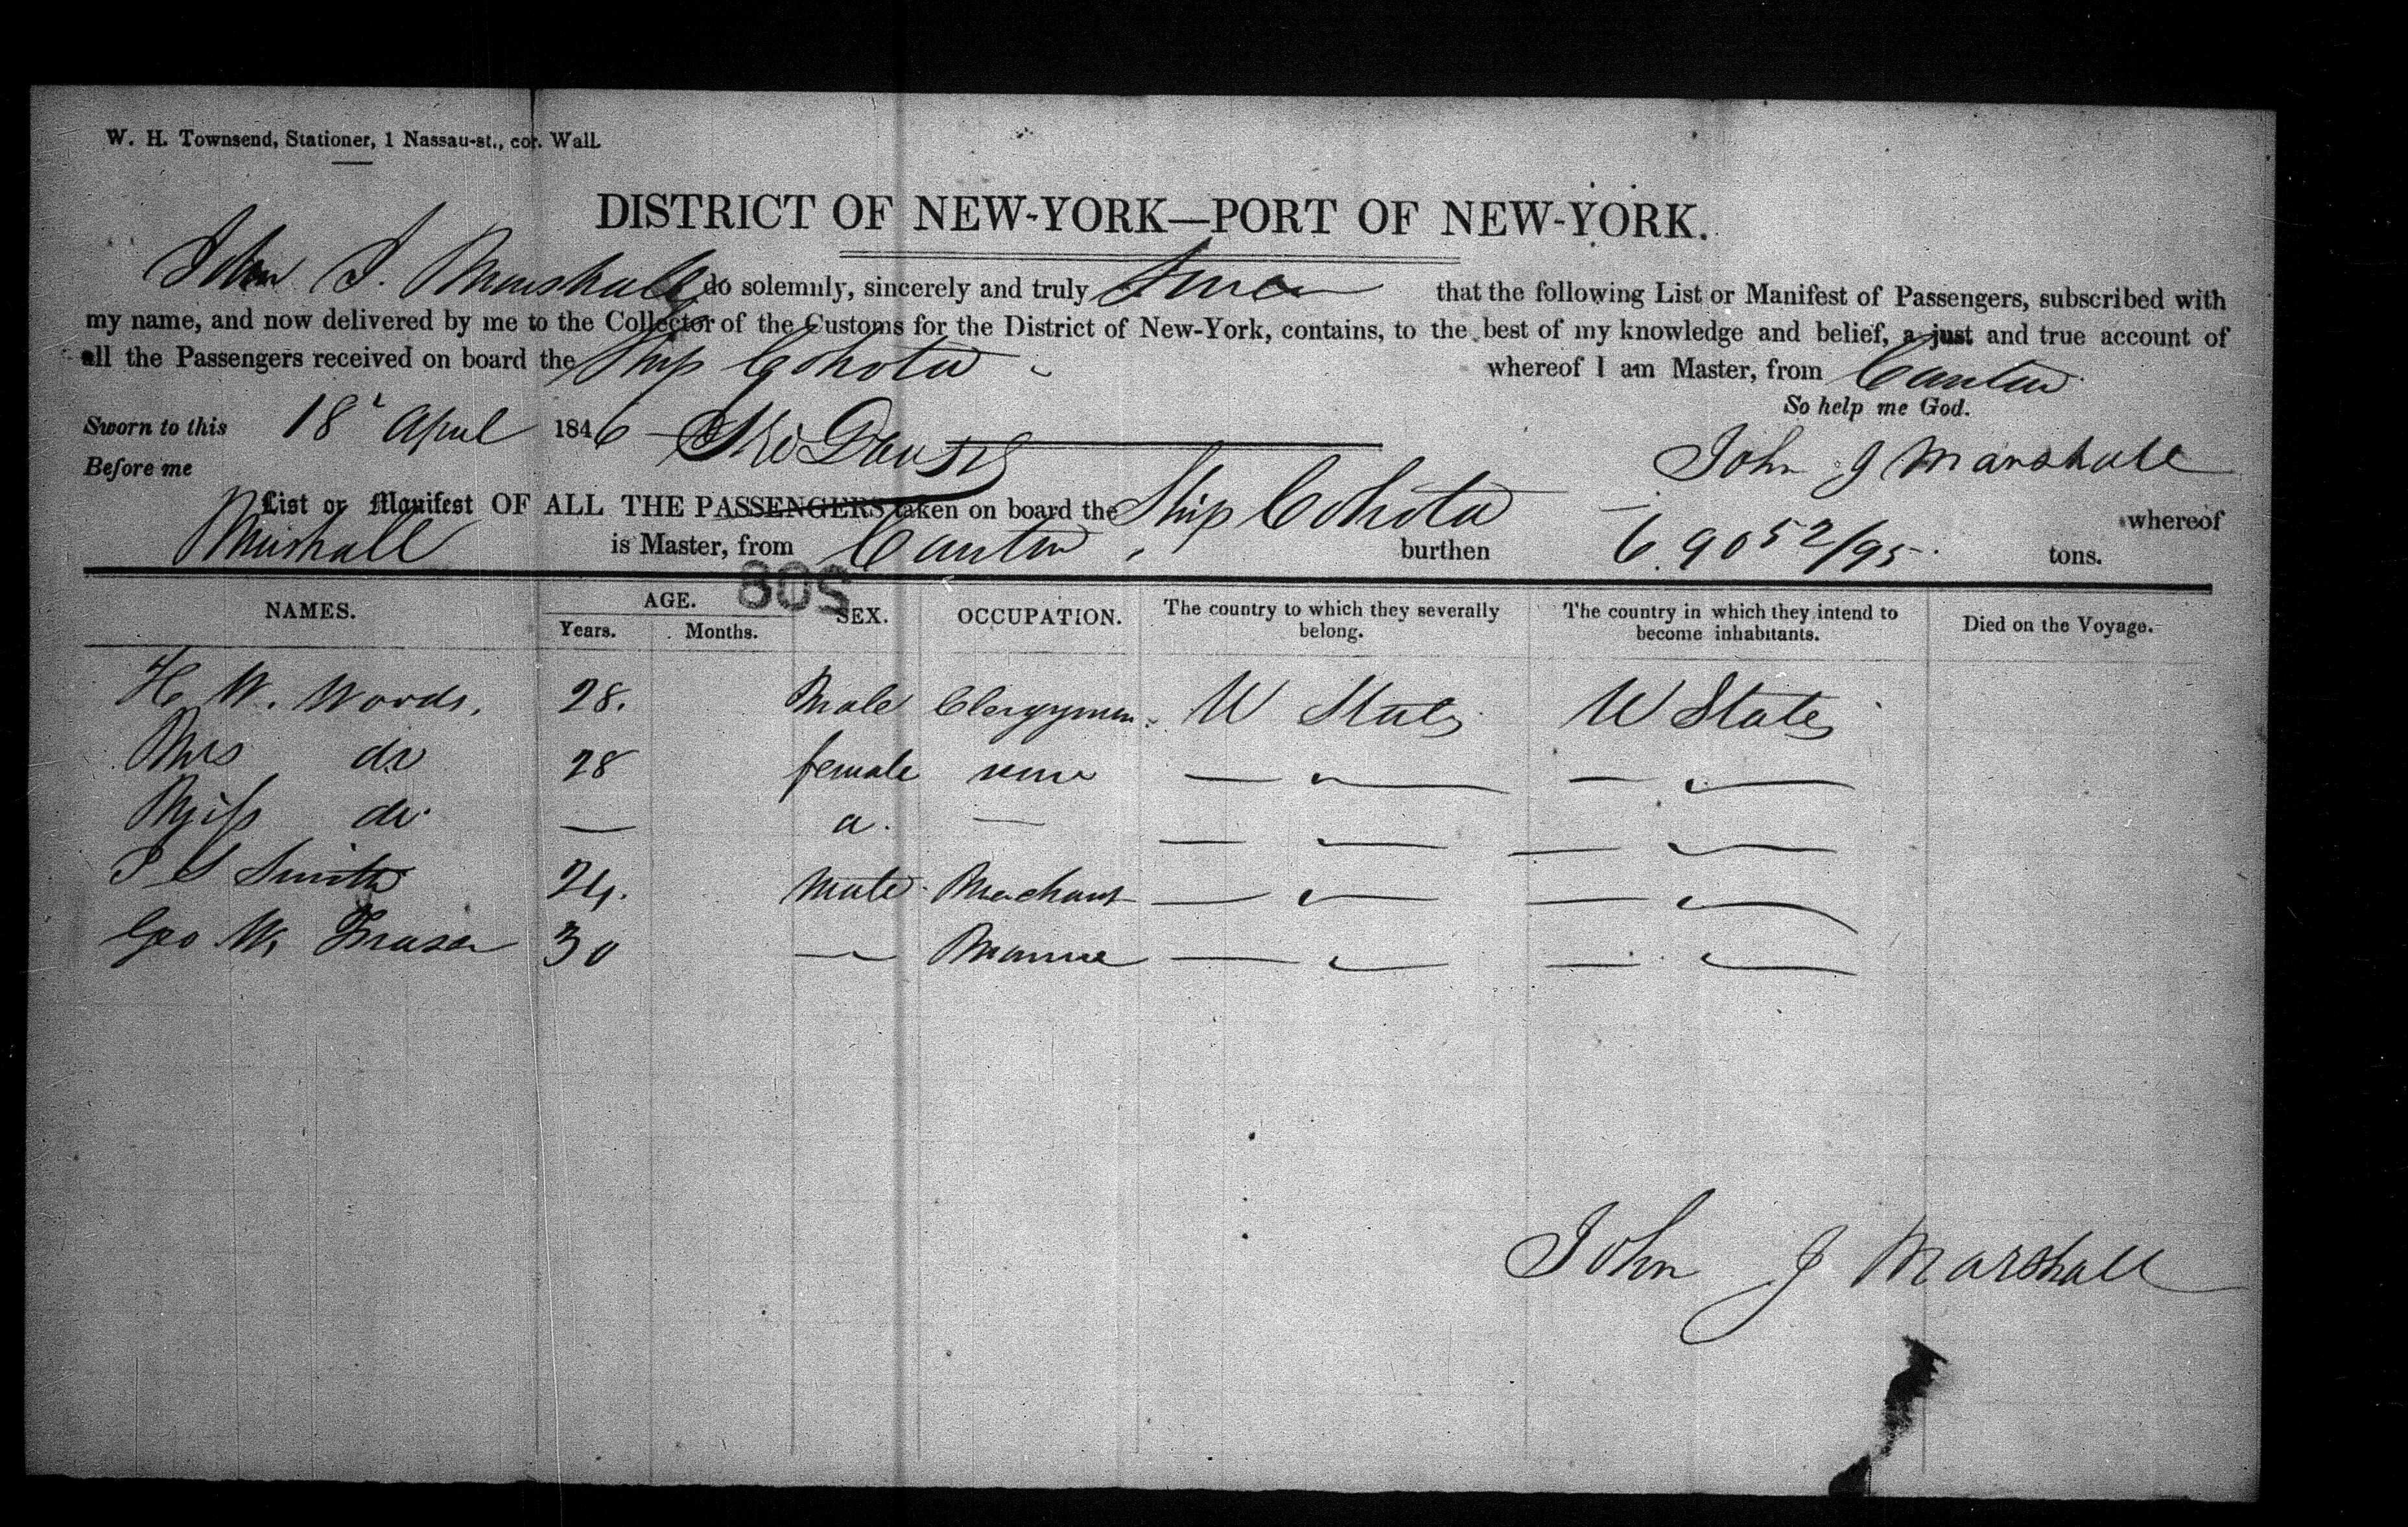 W. H. Townsend, Stationer, 1 Nassau-st., cor. Wall.
DISTRICT OF NEW-YORK—PORT OF NEW-YORK.
John J. Marshall do solemnly, sincerely and truly Swear that the following List or Manifest of Passengers, subscribed with
my name, and now delivered by me to the Collector of the Customs for the District of New-York, contains, to the best of my knowledge and belief, a just and true account of
all the Passengers received on board the Ship Cohota whereof I am Master, from Canton
So help me God.
Sworn to this 18 April 1846
Before me John J Marshall
List or Manifest OF ALL THE PASSENGERS taken on board the Ship Cohota whereof
Marshall is Master, from Canton, burthen 690 52/95 tons.
508
NAMES. AGE. SEX. OCCUPATION. The country to which they severally belong. The country in which they intend to become inhabitants. Died on the Voyage.
Years. Months.
H. W. Woods, 28. Male Clergyman U States U States
Mrs do 28 female none — —
Miss do — — — —
Smith 24. Male Merchant — —
Geo W. Fraser 30 — Marine — —
John J Marshall